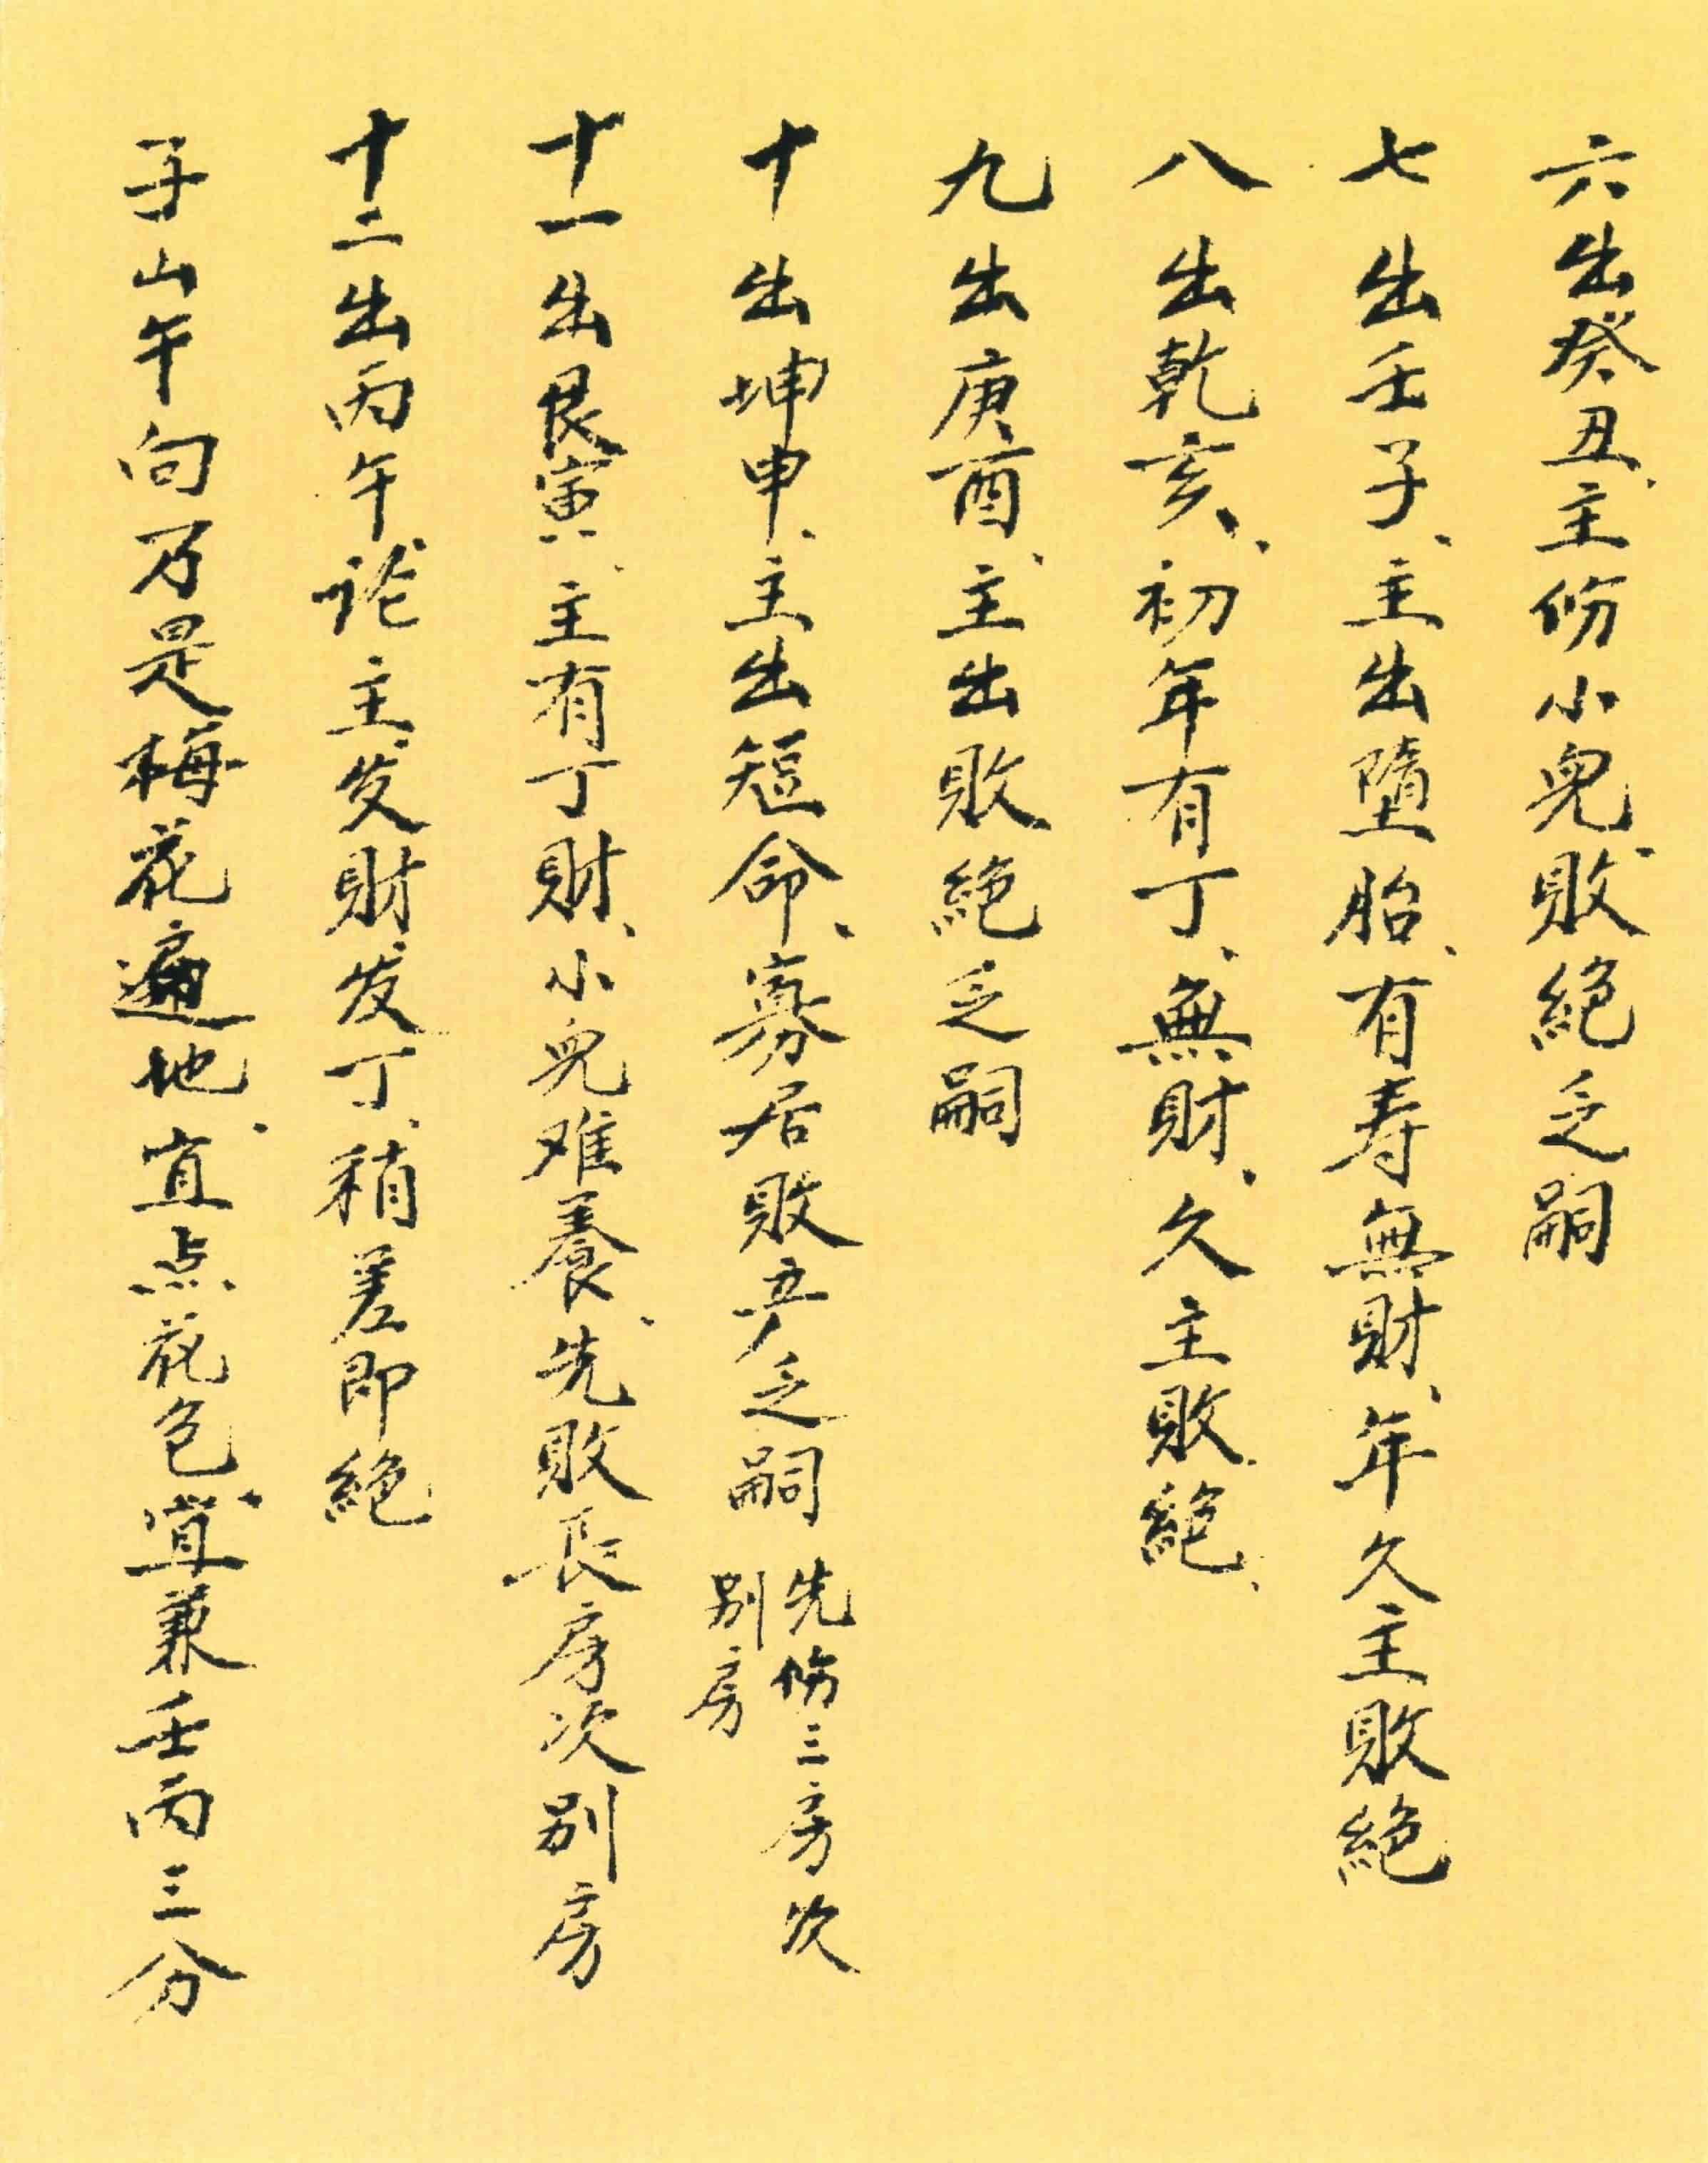 六出癸丑、主伤小兒、敗絕乏嗣
七出壬子、主出墮胎、有寿無財、年久主敗絕
八出乾亥、初年有丁、無財、久主敗絕、
九出庚酉、主出敗絕乏嗣
十出坤申、主出短命、寡居敗产乏嗣
先伤三房次
别房
十一出艮寅、主有丁財、小兒难養、先敗長房次别房
十二出丙午、论主发財发丁、稍差即絕
子山午向乃是梅花遍地、宜点花色、宜兼壬丙三分